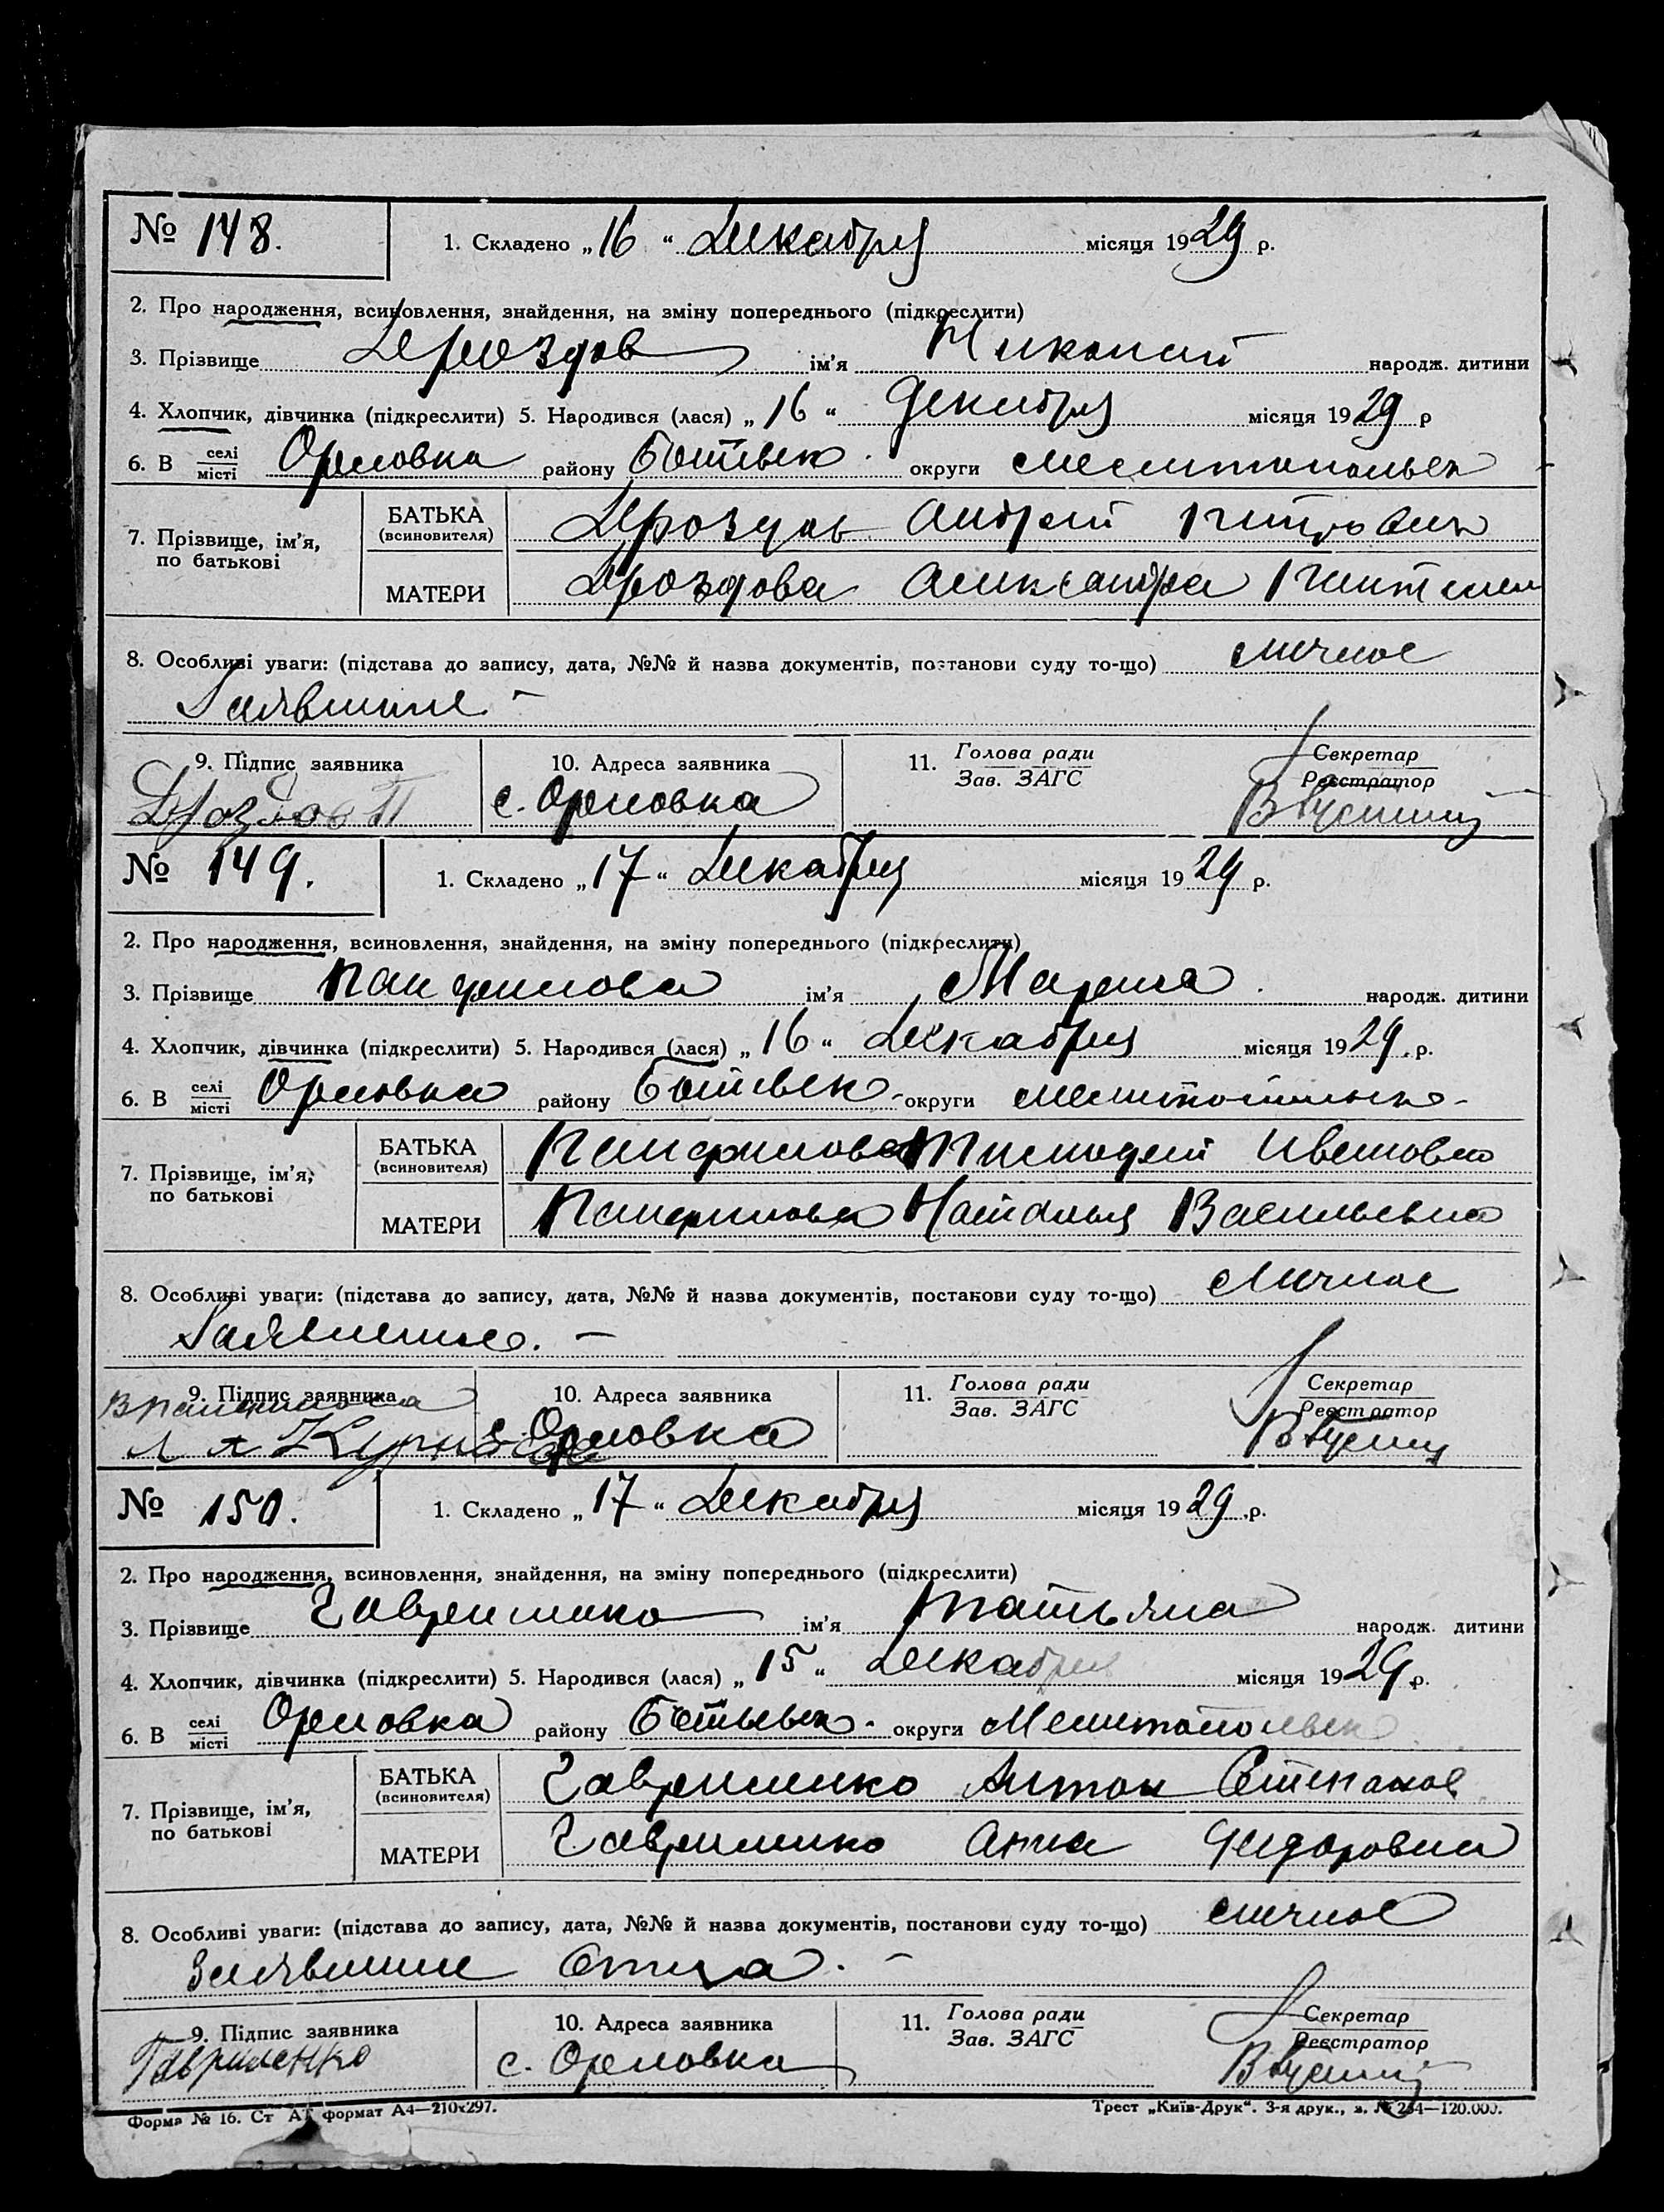 № 148. 1. Складено „16“ Декабря місяця 1929 р.
2. Про народження, всиновлення, знайдення, на зміну попереднього (підкреслити)
3. Прізвище Дроздов ім'я Николай народж. дитини
4. Хлопчик, дівчинка (підкреслити) 5. Народився (лася) „16“ Декабря місяця 1929 р
6. В селі місті Орловка району округи
7. Прізвище, ім'я, по батькові
БАТЬКА (всиновителя) Дроздов Андрей
МАТЕРИ Дроздова Александра
8. Особливі уваги: (підстава до запису, дата, №№ й назва документів, постанови суду то-що) личное
Заявление –
9. Підпис заявника 10. Адреса заявника 11. Голова ради Зав. ЗАГС Секретар Реєстратор
Дроздов с. Орловка
№ 149. 1. Складено „17“ Декабря місяця 1929 р.
2. Про народження, всиновлення, знайдення, на зміну попереднього (підкреслити)
3. Прізвище Панфилова ім'я Мария народж. дитини
4. Хлопчик, дівчинка (підкреслити) 5. Народився (лася) „16“ Декабря місяця 1929 р.
6. В селі місті Орловка району округи
7. Прізвище, ім'я, по батькові
БАТЬКА (всиновителя) Тимофей
МАТЕРИ Панфилова Наталья Васильевна
8. Особливі уваги: (підстава до запису, дата, №№ й назва документів, постанови суду то-що) Личное
Заявление. –
9. Підпис заявника 10. Адреса заявника 11. Голова ради Зав. ЗАГС Секретар Реєстратор
с. Орловка
№ 150. 1. Складено „17“ Декабря місяця 1929 р.
2. Про народження, всиновлення, знайдення, на зміну попереднього (підкреслити)
3. Прізвище Гавриленко ім'я Татьяна народж. дитини
4. Хлопчик, дівчинка (підкреслити) 5. Народився (лася) „15“ Декабря місяця 1929 р.
6. В селі місті Орловка району округи
7. Прізвище, ім'я, по батькові
БАТЬКА (всиновителя) Гавриленко Антон Степанов
МАТЕРИ Гавриленко Анна
8. Особливі уваги: (підстава до запису, дата, №№ й назва документів, постанови суду то-що) личное
Заявление Отца. –
9. Підпис заявника 10. Адреса заявника 11. Голова ради Зав. ЗАГС Секретар Реєстратор
Гавриленко с. Орловка
Форма № 16. Ст АТ формат А4—210x297. Трест „Київ-Друк“. 3-я друк., з. № 234—120.000.